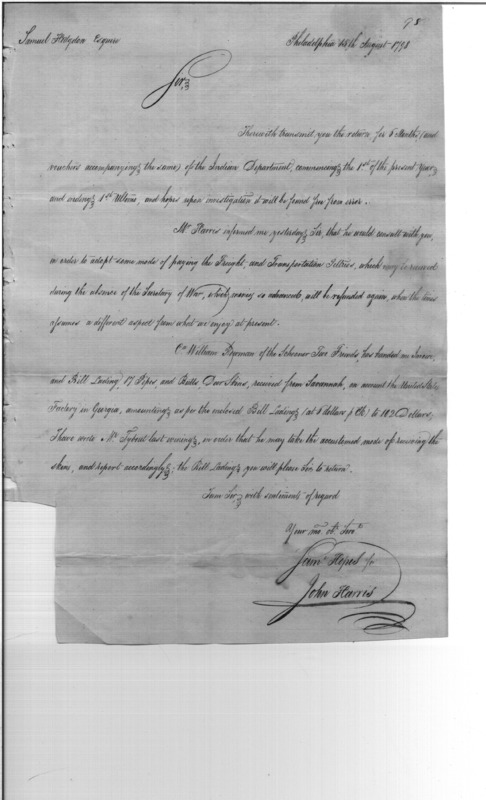 98
Samuel Hodgdon Esquire Philadelphia 18th August 1798
Sir,
I herewith transmit you the return for 6 Months, (and
vouchers accompanying the same) of the Indian Department, commencing the 1st of the present Year,
and ending 1st Ultimo, and hopes upon investigation it will be found free from error.
Mr Harris informed me yesterday Sir, that he would consult with you,
in order to adopt some mode of paying the Freight, and Transportation Peltries, which may be received
during the absence of the Secretary of War, which monies so advanced, will be refunded again, when the times
assumes a different aspect from what we enjoy at present.
Cn William Dyerman of the Schooner Two Friends, has handed me Invoice,
and Bill Lading 17 Pipes, and Butts, Deer Skins, received from Savannah, on account the United States
Factory in Georgia, amounting as per the inclosed Bill Lading (at 6 dollars p Ck) to 102 Dollars;
I have wrote Mr Tybout last evening, in order that he may take the accustomed mode of receiving the
skins, and report accordingly; the Bill Lading you will please be to return.
I am Sir with sentiments of regard
Your mo. ob. Servt
Saml Hopes for
John Harris